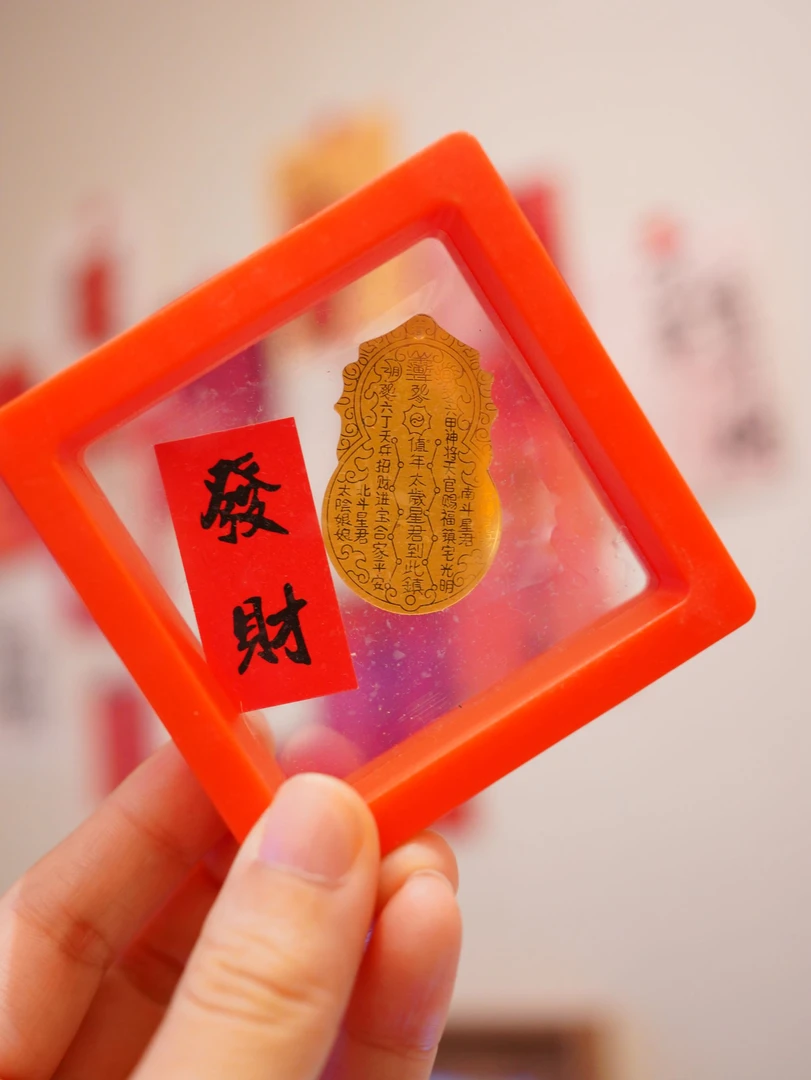 發財
南斗星君
六甲神將天官賜福宅光明
值年太歲星君到此鎮
六丁天兵招財进宝合家平安
北斗星君
太陰娘娘